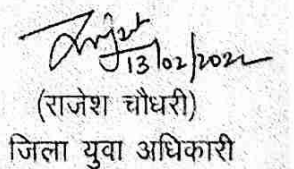 13/02/2022
(राजेश चौधरी)
जिला युवा अधिकारी